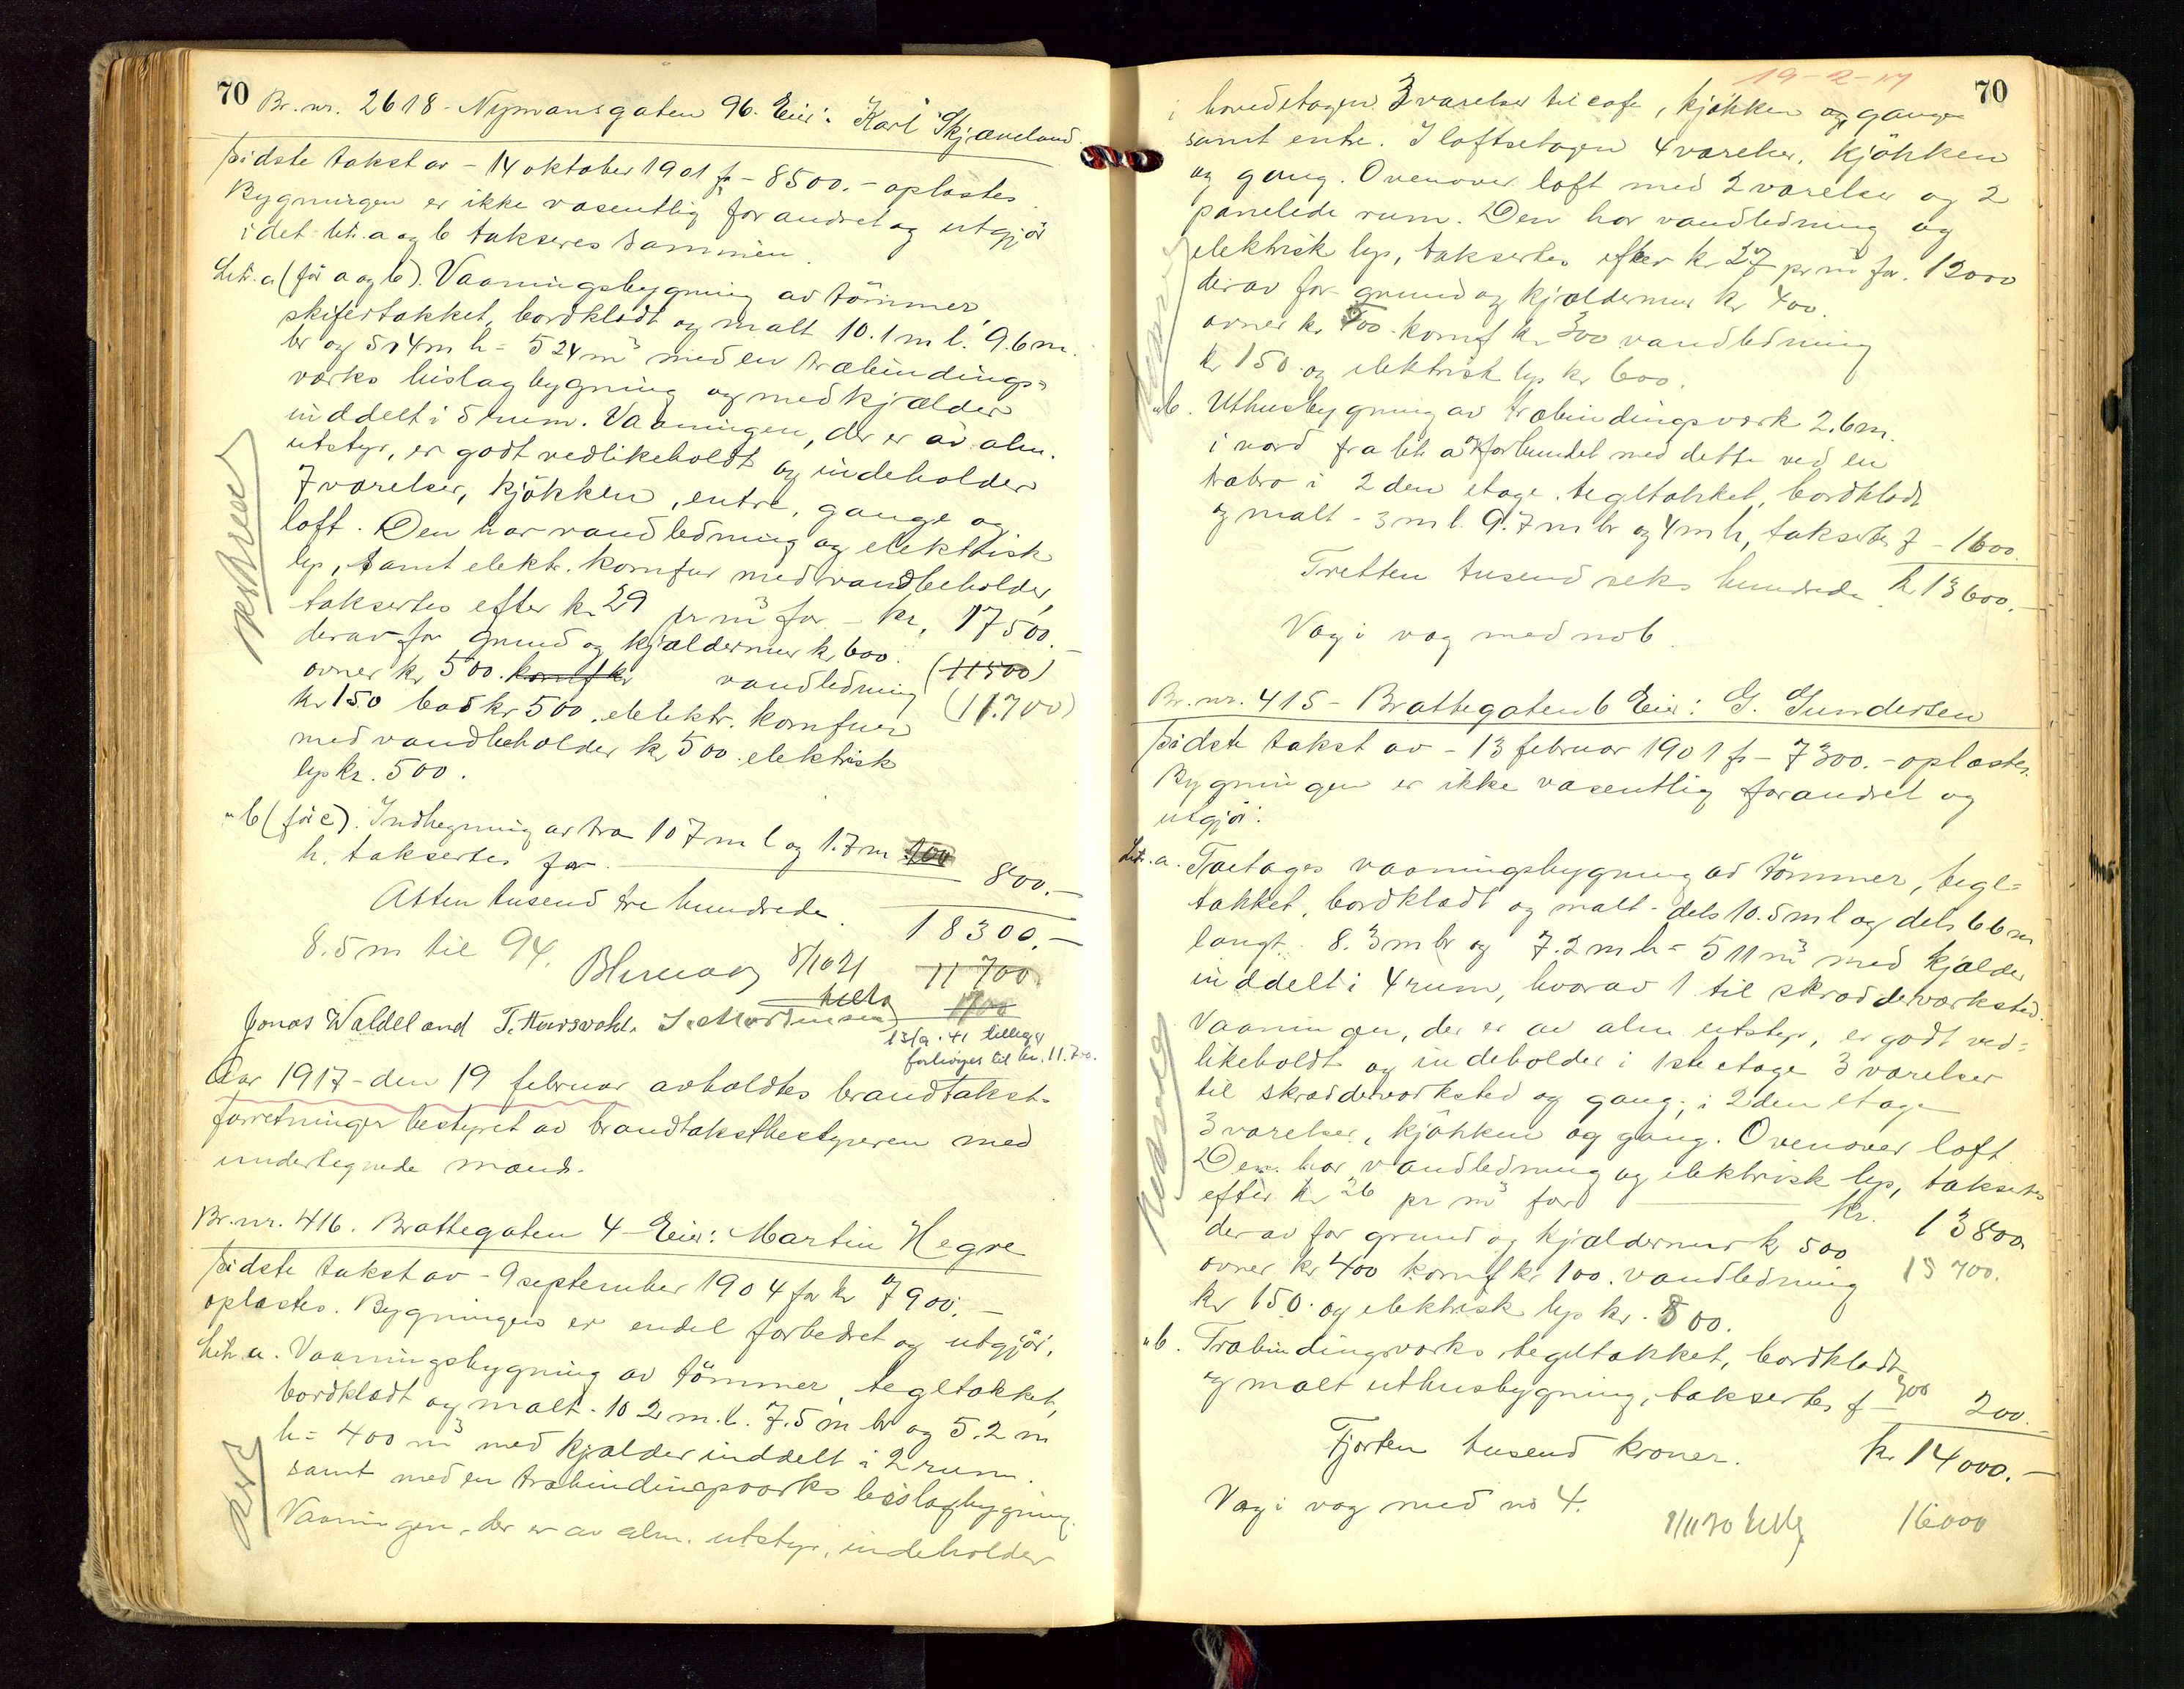 70
Br. nr. 2618 - Nymansgaten 96. Eier: Karl Skjæveland.
Sidste takst av - 14 oktober 1901 fr - 8500.- oplæstes.
Bygningen er ikke væsentlig forandret og utgjör
idet litr. a og b takseres sammen.
Litr. a (för a og b). Vaaningsbygning av tömmer,
skifertækket, bordklædt og malt 10.1 m l. 9.6 m.
br og 5.4 m h = 524 m³ med en træbindings-
værks bislagbygning og med kjælder
inddelt i 5 rum. Vaaningen, der er av alm.
utstyr, er godt vedlikeholdt og indeholder
7 værelser, kjökken, entre, gange og
loft. Den har vandledning og elektrisk
lys, samt elektr. komfur med vandbeholder,
taksertes efter kr 29 pr m³ for - kr. 17500.-
derav for grund og kjældermur kr 600. (11500)
ovner kr 500. komf kr vandledning (11.700)
kr 150 bad kr 500. elektr. komfur
med vandbeholder kr 500. elektrisk
lys kr. 500.
" b (för c). Indhegning av træ 107 m l og 1.7 m
h. taksertes for 800.-
Atten tusend tre hundrede. 18300.-
8.5 m til 94. 8/10 21 11700
Jonas Waldeland
13/9.41 tillegg
forhöyes til kr. 11.700.
Aar 1917 - den 19 februar avholdtes brandtakst-
forretninger bestyret av brandtakstbestyreren med
undertegnede mænd.
Br. nr. 416. Brattegaten 4 Eier: Martin Hegre
Sidste takst av - 9 september 1904 for kr 7900.-
oplæstes. Bygningen er endel forbedret og utgjör,
Litr. a. Vaaningsbygning av tömmer, tegltækket,
bordklædt og malt - 10.2 m. l. 7.5 m br og 5.2 m
h = 400 m³ med kjælder inddelt i 2 rum.
samt med en træbindingsværks bislagbygning.
Vaaningen, der er av alm. utstyr, indeholder
19-2-17
70
i hovedetagen 3 værelser til cafe, kjökken og gange
samt entre. I loftsetagen 4 værelser, kjökken
og gang. Ovenover loft med 2 værelser og 2
panelede rum. Den har vandledning og
elektrisk lys, taksertes efter kr 27 pr m³ for. 12000
derav for grund og kjældermur kr 400.
ovner kr 500 - komf kr 300 vandledning
kr 150. og elektrisk lys kr 600.
" b. Uthusbygning av træbindingsværk 2.6 m.
i nord fra litr. a og forbundet med dette ved en
træbro i 2den etage. tegltækket, bordklædt
og malt - 3 m l. 9.7 m br og 4 m h, taksertes f - 1600.
Tretten tusend seks hundrede kr 13600.-
Væg i væg med no 6.
Br. nr. 415 - Brattegaten 6 Eier: G. Gundersen
Sidste takst av - 13 februar 1901 fr - 7300.- oplæstes.
Bygningen er ikke væsentlig forandret og
utgjör.
Litr. a. Toetages vaaningsbygning av tömmer, tegl-
tækket, bordklædt og malt - dels 10.5 m l og dels 6.6 m
langt. 8.3 m br og 7.2 m h = 511 m³ med kjælder
inddelt i 4 rum, hvorav 1 til skrædderværksted.
Vaaningen, der er av alm utstyr, er godt ved-
likeholdt og indeholder i 1ste etage 3 værelser
til skrædderværksted og gang; i 2den etage
3 værelser, kjökken og gang. Ovenover loft
Den har vandledning og elektrisk lys, taksertes
efter kr 26 pr m³ for kr. 13800
derav for grund og kjældermur kr 500
ovner kr 400 komf kr 100. vandledning 15700.
kr 150. og elektrisk lys kr. 800.
" b. Træbindingsværks tegltækket, bordklædt
og malt uthusbygning, taksertes f - 300 200.
Fjorten tusend kroner. kr 14000.-
Væg i væg med no 4.
16000